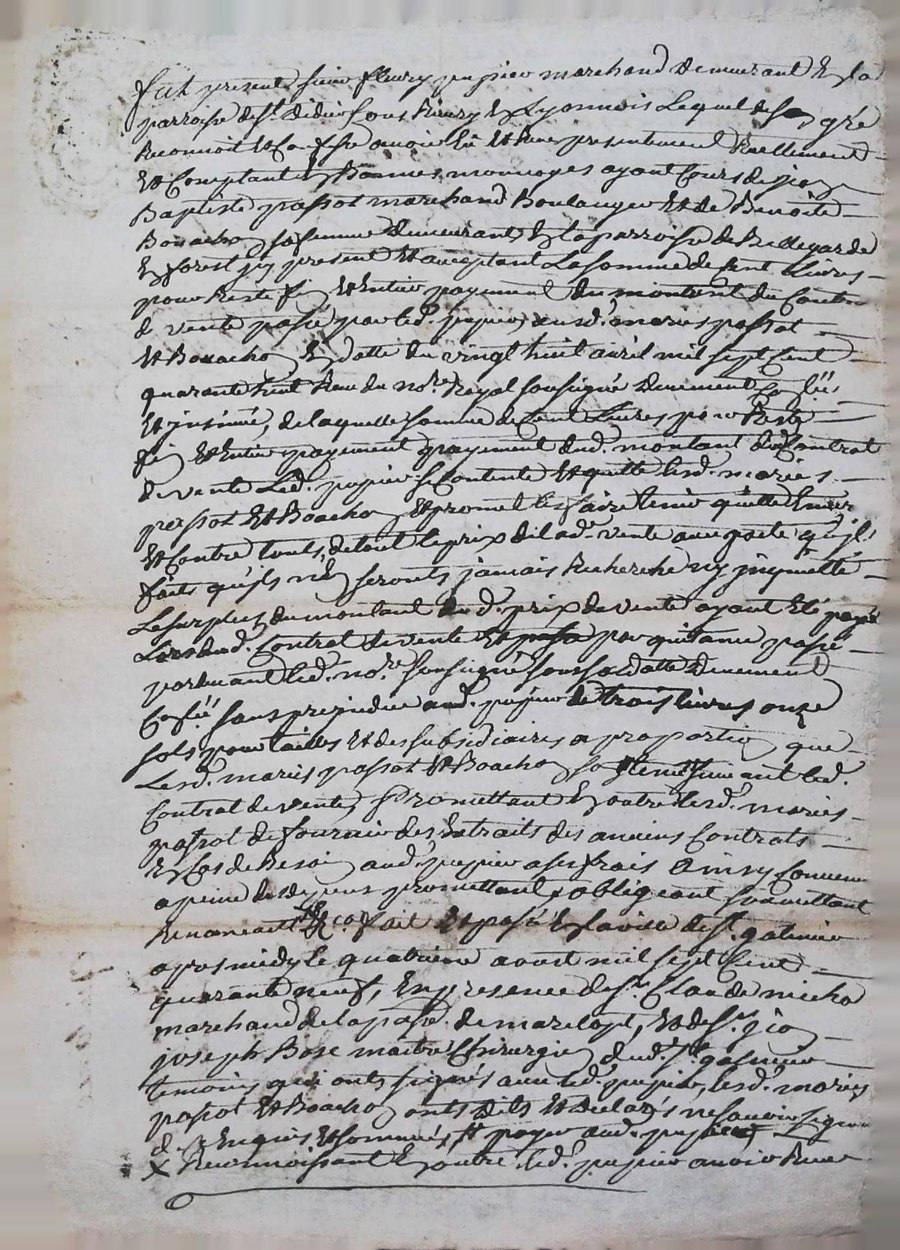 fut present sieur fleury pupier marchand demeurant en la
parroisse de st. didier sous Rivery en Lyonnois Lequel de son gré
Reconnoit et Confesse avoir eu et Receu presentement Reellement
et Comptant en Bonnes monnoyes ayant Cours de jean
Baptiste passot marchand Boulanger et de Benoite
Bouachon sa femme demeurants en la parroisse de Bellegarde
en forest icy present et acceptant La somme de Cent Livres
pour Reste fin et Entier payement du montant du Contrat
de vente passé par led. pupier ausd. mariés passot
et Bouachon en datte du vingt huit avril mil sept Cent
quarante huit Receu du nore. Royal soussigné Duement Collé.
et insinué, de laquelle somme de Cent Livres pour Reste
fin et Entier payement payement dud. montant dud. Contrat
de vente Led. pupier se Contente et quitte lesd. mariés
passot et Boachon et promet les faire tenir quitte Envers
et Contre touts, de tout le prix de lad. vente avec pacte qu'il
faits qu'ils n'en seronts jamais Recherché ny inquietté
Le surplus du montant dud. prix de vente ayant été payé
Lors dud. Contrat de vente et par quittance passé
pardevant led. nore. soussigné sous sa datte Duement
Collé sans prejudice aud. pupier de trois livres onze
sols pour tailles et des subsidiaires a proportion que
Lesd. mariés passot et Boachon suivant led.
Contrat de vente, promettant En outre lesd. mariés
passot de fournir des Extraits des anciens Contrats
En Cas de Besoin aud. pupier a ses frais Ainsy Convenu
a peine de depens promettant, obligeant soumettant
Renoncant &ca. fait et passé En la ville de st. galmier
apres midy le quatrieme aoust mil sept Cent
quarante neuf, En presence de sr. Claude micho
marchand de la passe. de marclopt, et de sr.
joseph Bose maitre Chirurgien dud. st. galmier
temoins qui onts signés avec led. pupier, lesd. mariés
passot et Boachon onts dits et Declarés ne savoir signer
de ce Enquis et sommés, payer aud. pupier
x Reconnoissant En outre led. pupier avoir Receu